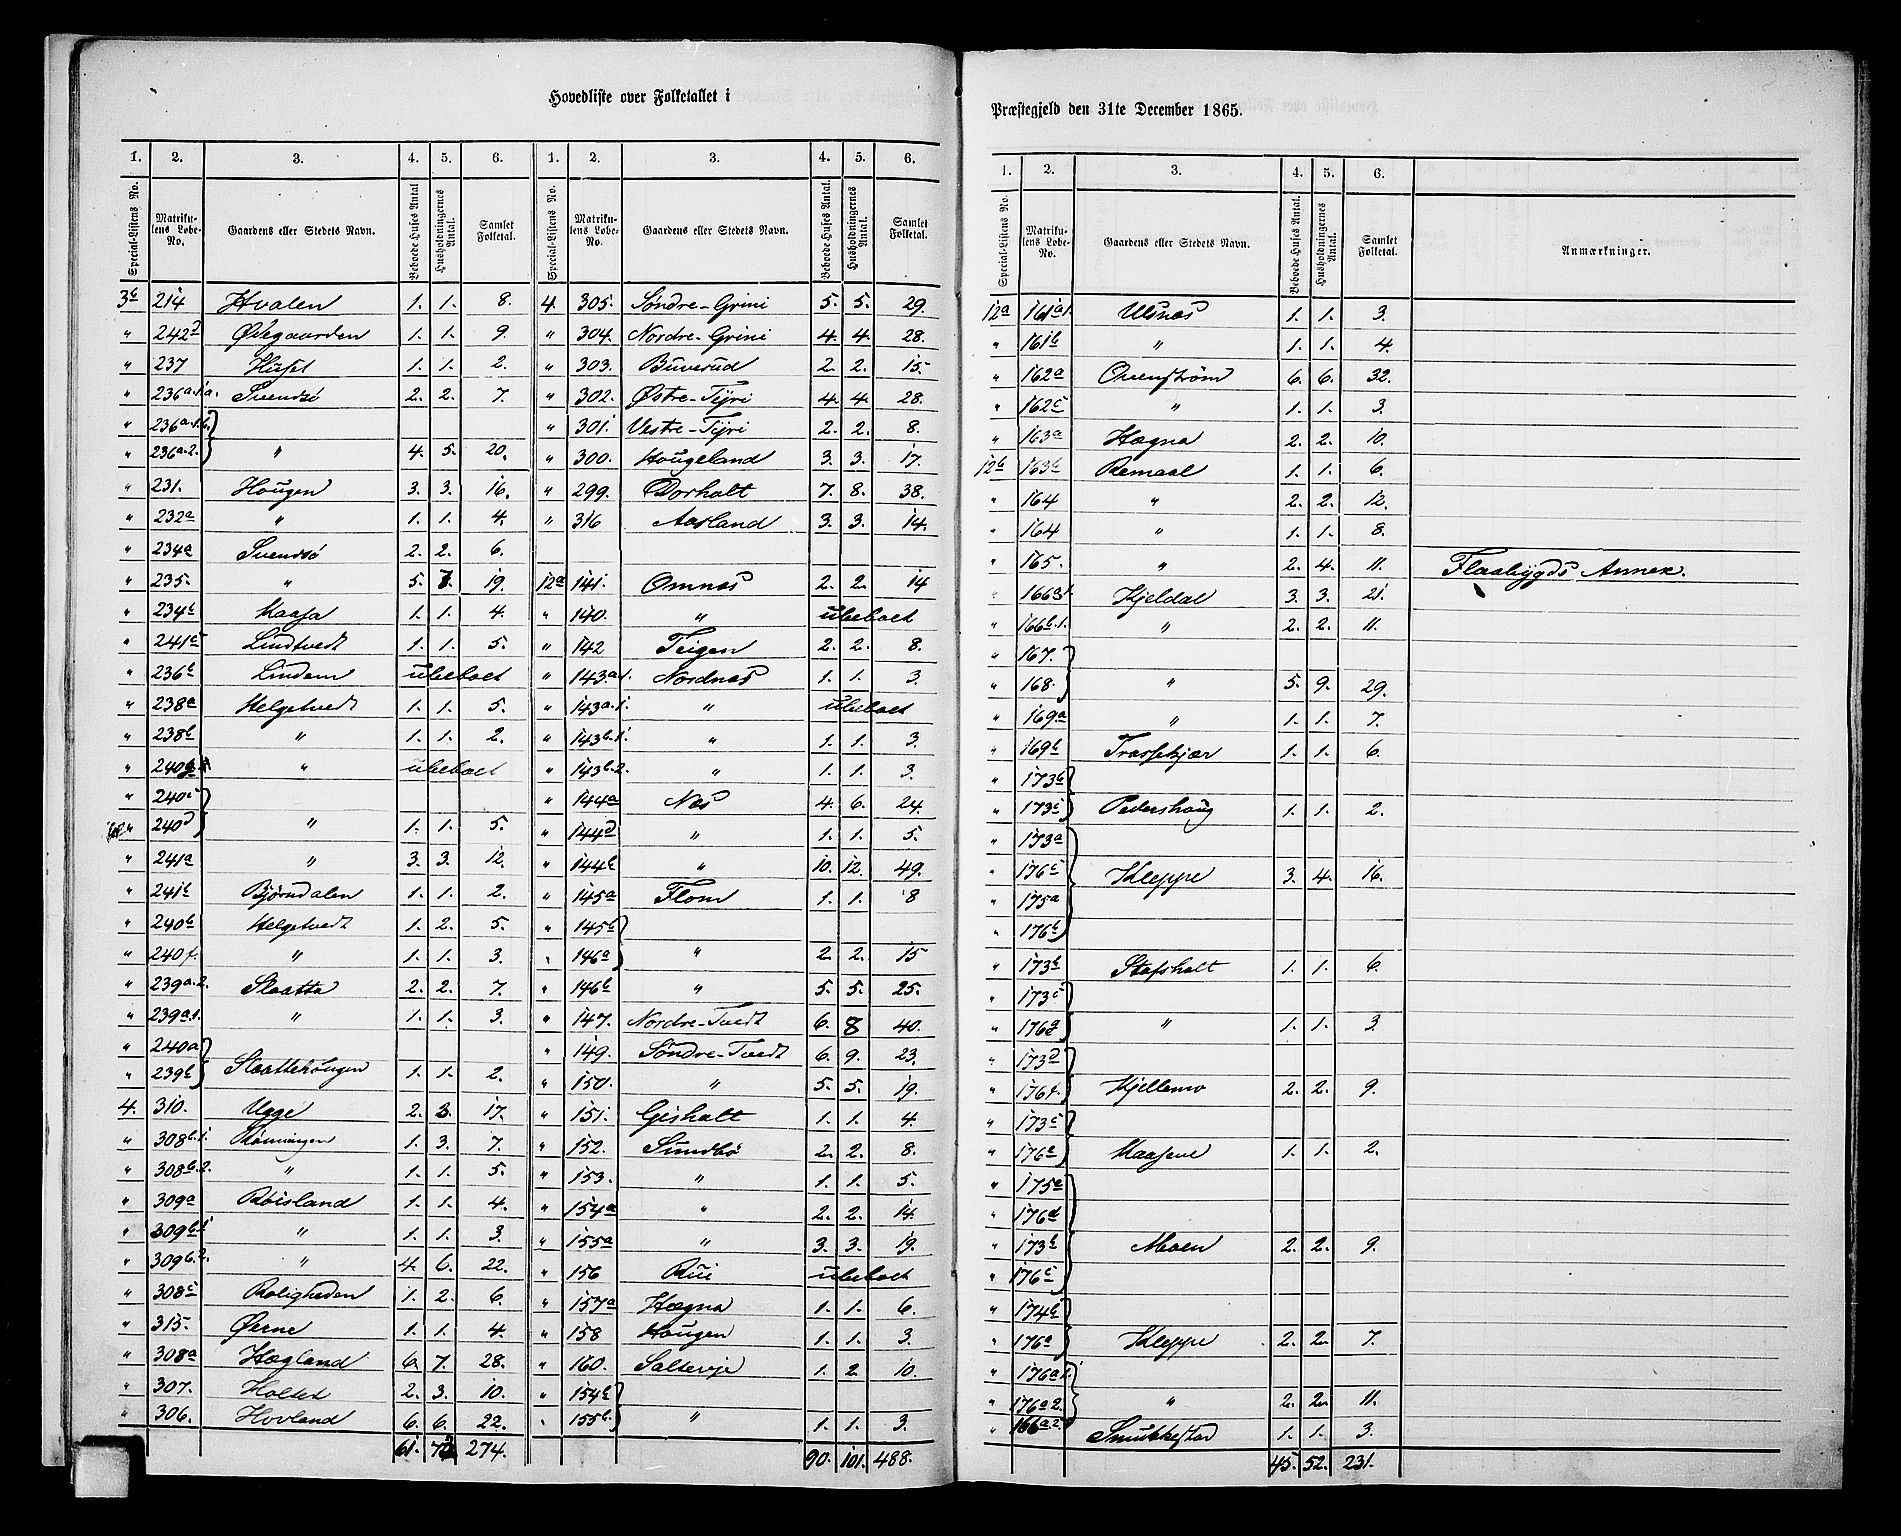 Hovedliste over Folketallet i
1. 2. 3. 4. 5. 6. 1. 2. 3. 4. 5. 6.
Special-Listens No. Matrikulens Løbe-No. Gaardens eller Stedets Navn. Beboede Huses Antal Husholdningernes Antal. Samlet Folketal. Special-Listens No. Matrikulens Løbe-No. Gaardens eller Stedets Navn. Beboede Huses Antal. Husholdningernes Antal. Samlet Folketal.
3b 214 Hvalen 1. 1. 8.
" 242d Ødegaarden 1. 1. 9.
" 237 Huset 1. 1. 2.
" 236a.1a. Svendsø 2. 2. 7.
" 236a.1.b.
" 236a.2. " 4. 5. 20.
" 231. Hougen 3. 3. 16.
" 232a " 1. 1. 4.
" 234a Svendsø 2. 2. 6.
" 235. " 5. 7. 19.
" 234b Kaasa 1. 1. 4.
" 241c Lindtvedt 1. 1. 5.
" 236b Lindem ubeboet
" 238a Helgetvedt 1. 1. 5.
" 238b " 1. 1. 2.
" 240 " ubeboet
" 240c
" 240d " 1. 1. 5.
" 241a " 3. 3. 12.
" 241b Bjørndalen 1. 1. 2.
" 240b Helgetvedt 1. 2. 5.
" 240f. " 1. 1. 3.
" 239a.2. Slaatta 2. 2. 7.
" 239a.1. " 1. 1. 3.
" 240a
" 239b Slaattehougen 1. 1. 2.
4. 310. Ugge 2. 3. 17.
" 308b.1. Rønningen 1. 3. 7.
" 308b.2. " 1. 1. 5.
" 309a Røisland 1. 1. 4.
" 309b.1 " 1. 1. 3.
" 309b.2. " 4. 6. 22.
" 308c Roligheden 1. 2. 6.
" 315. Øerne 1. 1. 4.
" 308a Hægland 6. 7. 28.
" 307. Holtet 2. 3. 10.
" 306. Hovland 6. 6. 22.
61. 72 274.
4. 305. Søndre-Grini 5. 5. 29.
" 304. Nordre-Grini 4. 4. 28.
" 303. Buverud 2. 2. 15.
" 302. Østre-Tyri 4. 4. 28.
" 301. Vestre-Tyri 2. 2. 8.
" 300. Hougeland 3. 3. 17.
" 299. Dorholt 7. 8. 38.
" 316 Aasland 3. 3. 14.
12a 141. Omnæs 2. 2. 14
" 140. " ubeboet
" 142 Teigen 2. 2. 8.
" 143.a.1. Nordnæs 1. 1. 3.
" 143a.1. " ubeboet
" 143b.1. " 1. 1. 3.
" 143b.2. " 1. 1. 3.
" 144a Næs 4. 6. 24.
" 144d " 1. 1. 5.
" 144b " 10. 12. 49.
" 145a Flom 1. 1. 8
" 145b
" 146a " 2. 2. 15
" 146b " 5. 5. 25.
" 147. Nordre-Tvedt 6. 8 40.
" 149. Søndre-Tvedt 6. 9. 23.
" 150. " 5. 5. 19.
" 151. Gisholt 1. 1. 4.
" 152. Sundbø 2. 2. 8.
" 153. " 1. 1. 5.
" 154a " 2. 2. 14.
" 155a " 3. 3. 19.
" 156 Rui ubeboet
" 157a Hægna 1. 1. 6.
" 158 Hougen 1. 1. 3.
" 160. Salterøe 1. 2 10.
" 154b
" 155b. " 1. 1. 3.
90. 101. 488.
Præstegjeld den 31te December 1865.
1. 2. 3. 4. 5. 6.
Special-Listens No. Matrikulens Løbe-No. Gaardens eller Stedets Navn. Beboede Huses Antal. Husholdningernes Antal. Samlet Folketal. Anmærkninger.
12a 161a1. Ulsnæs 1. 1. 3.
" 161b " 1. 1. 4.
" 162a Ovenstrøm 6. 6. 32.
" 162c " 1. 1. 3.
" 163a Hægna 2. 2. 10.
12b 163b Remaal 1. 1. 6.
" 164 " 2. 2. 12.
" 164 " 1. 1. 8.
" 165. " 2. 4. 11. Flaabygds Annex.
" 166a1. Kjeldal 3. 3. 21.
" 166b.1. " 2. 2. 11.
" 167.
" 168. " 5. 9. 29.
" 169a " 1. 1. 7.
" 169b Traffekjær 1. 1. 6.
" 173b
" 173c Pedershaug 1. 1. 2.
" 173a
" 176c Kleppe 3. 4. 16.
" 175a
" 176b
" 173b Stafsholt 1. 1. 6.
" 173c
" 176a " 1. 1. 3.
" 173d
" 176f. Kjellemo 2. 2. 9.
" 173c
" 176a Kaasene 1. 1. 2.
" 175a
" 176d
" 173b Moen 2. 2. 9.
" 176c
" 174b
" 176a Kleppe 2. 2. 7.
" 176a1.
" 176a2. " 2. 2. 11.
" 166a.2 Smukkestad 1. 1. 3.
45. 52. 231.